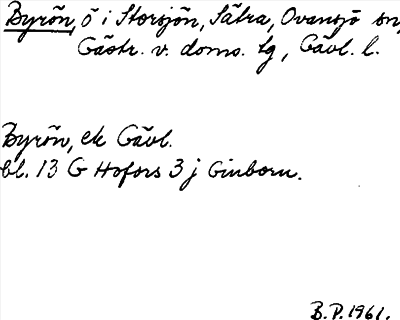 Byrön, ö i Storsjön, Sätra, Ovansjö sn,
Gästr. v. doms. tg, Gävl. l.
Byrön, ek Gävl.
bl. 13 G Hofors 3 j Ginborn.
B.P. 1961.